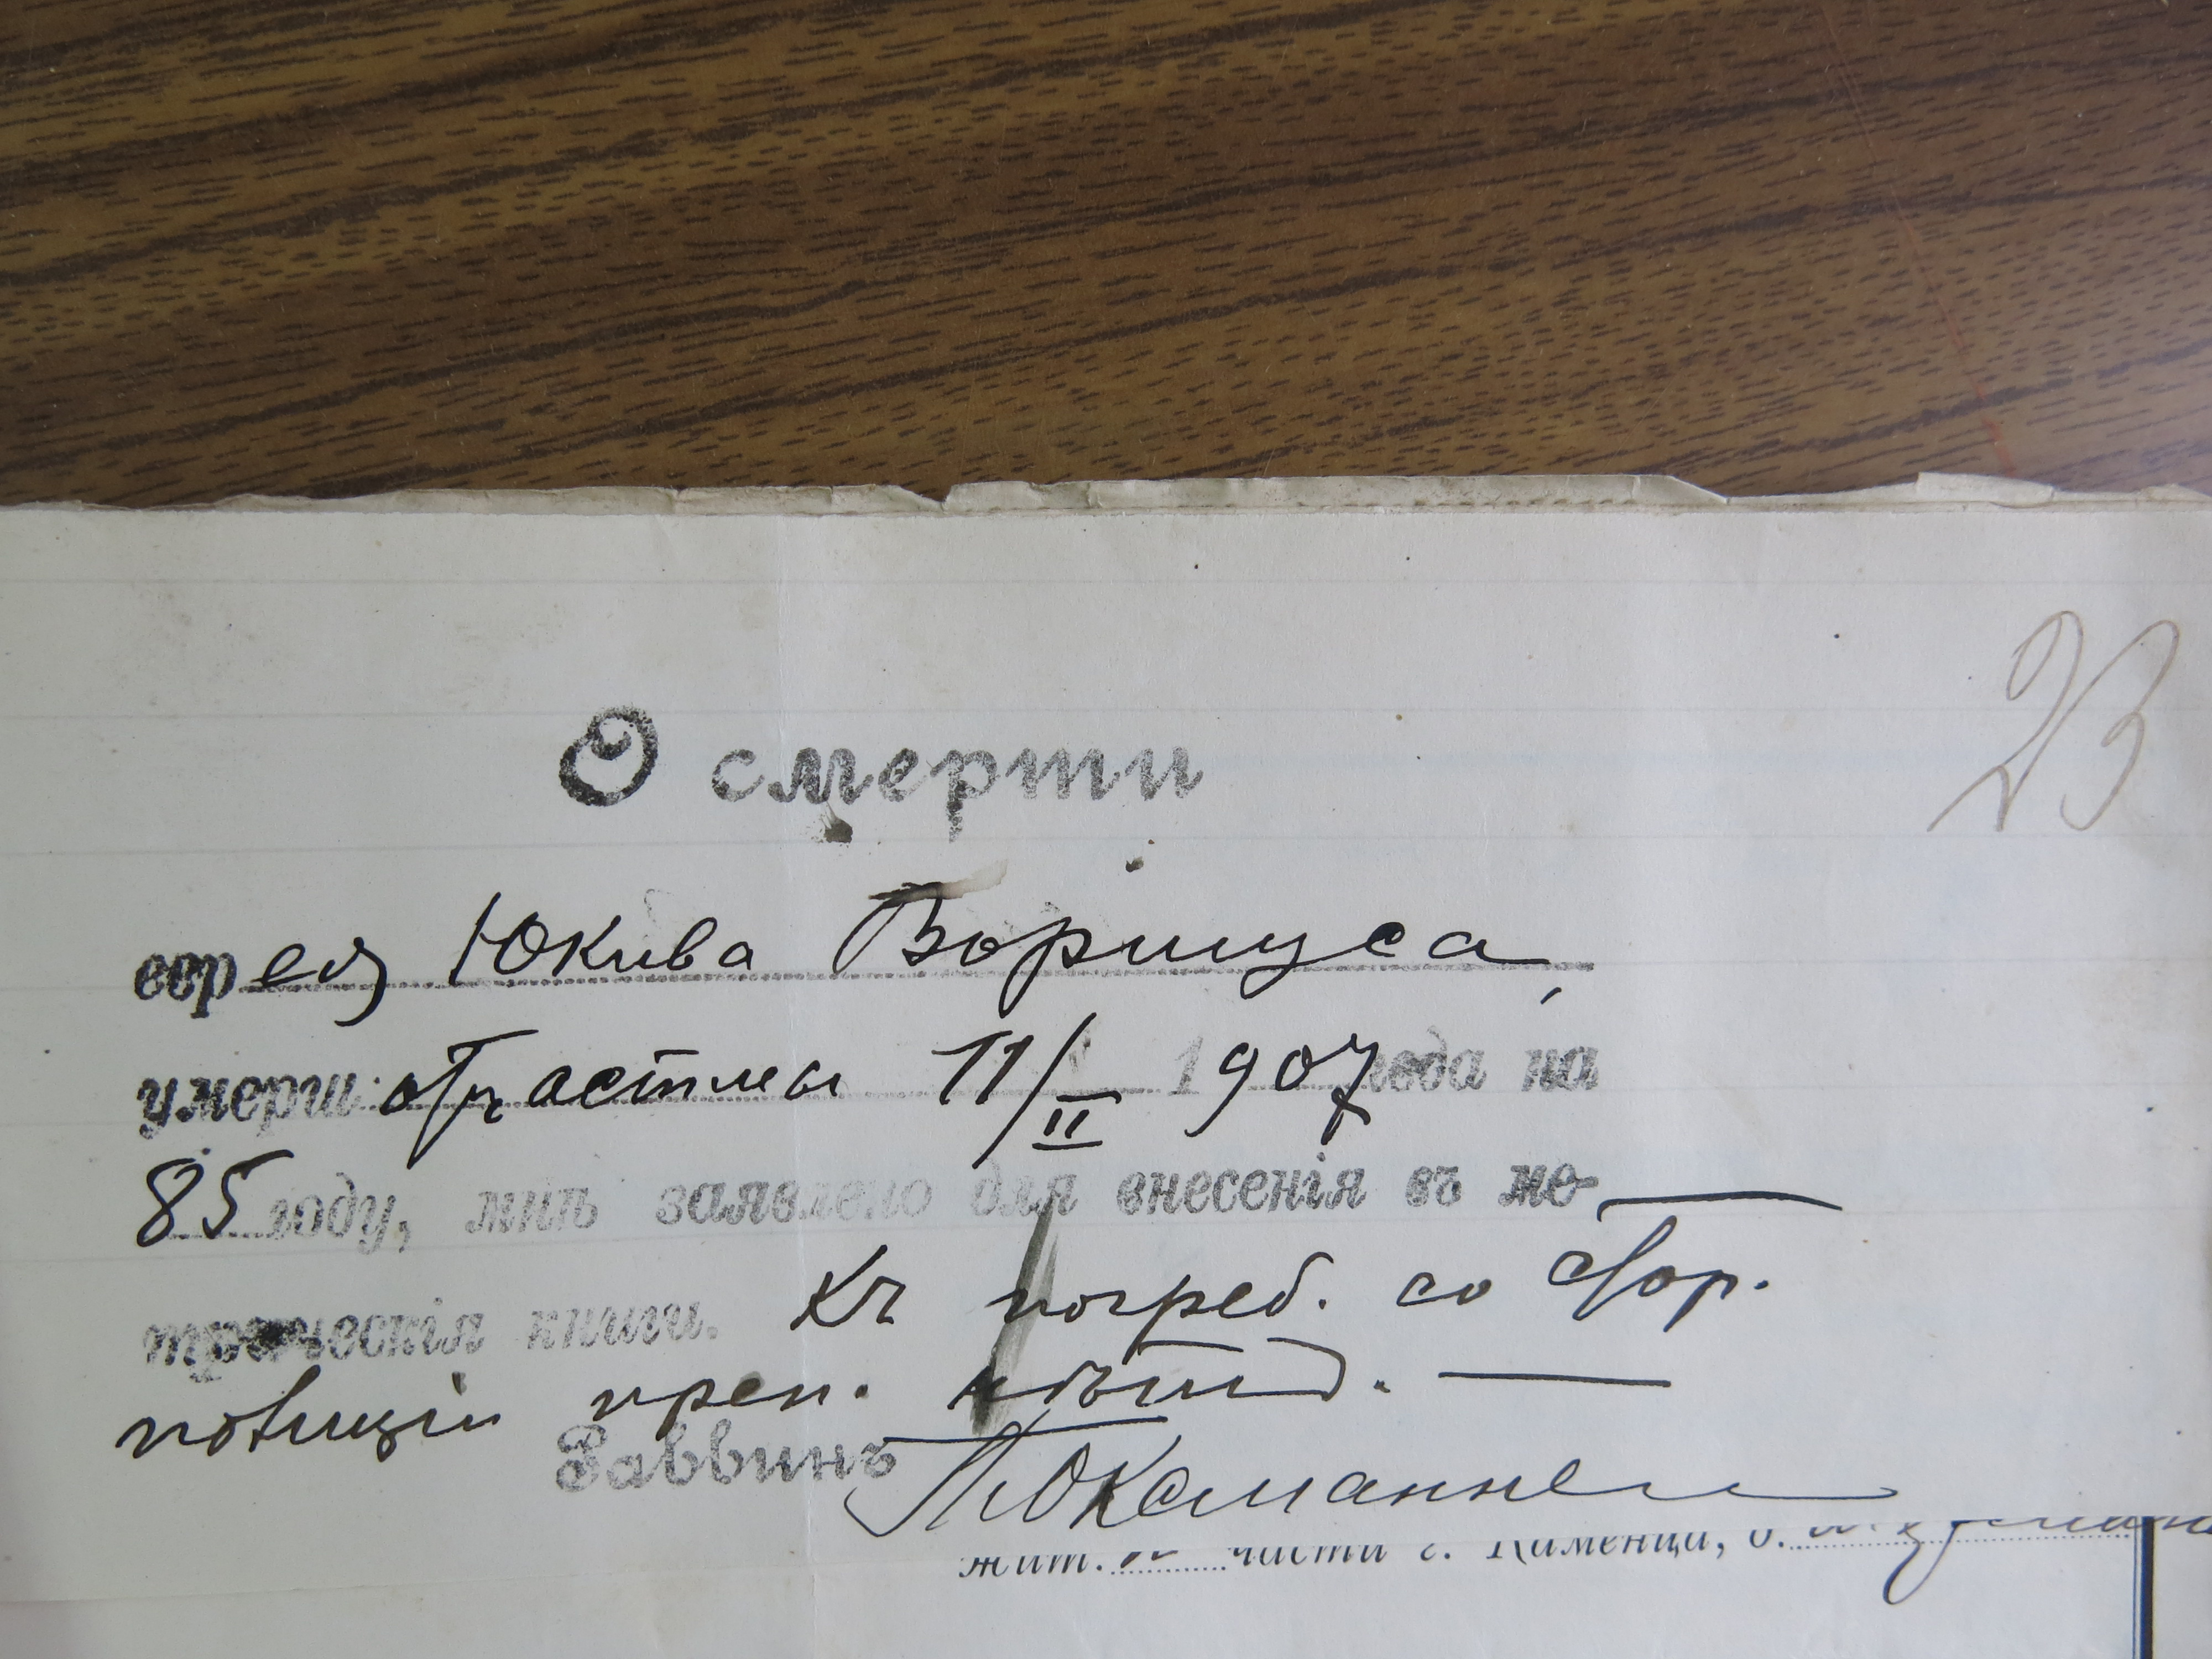 23
О смерти
еврея Юкива Воршуса,
умерш. отъ астмы 11/II 1907 года на
85 году, мнѣ заявлено для внесенія въ ме-
трическія книги. Къ погреб. со стор.
полиціи преп. нѣтъ. —
Раввинъ
жит. части г. Каменца, д.